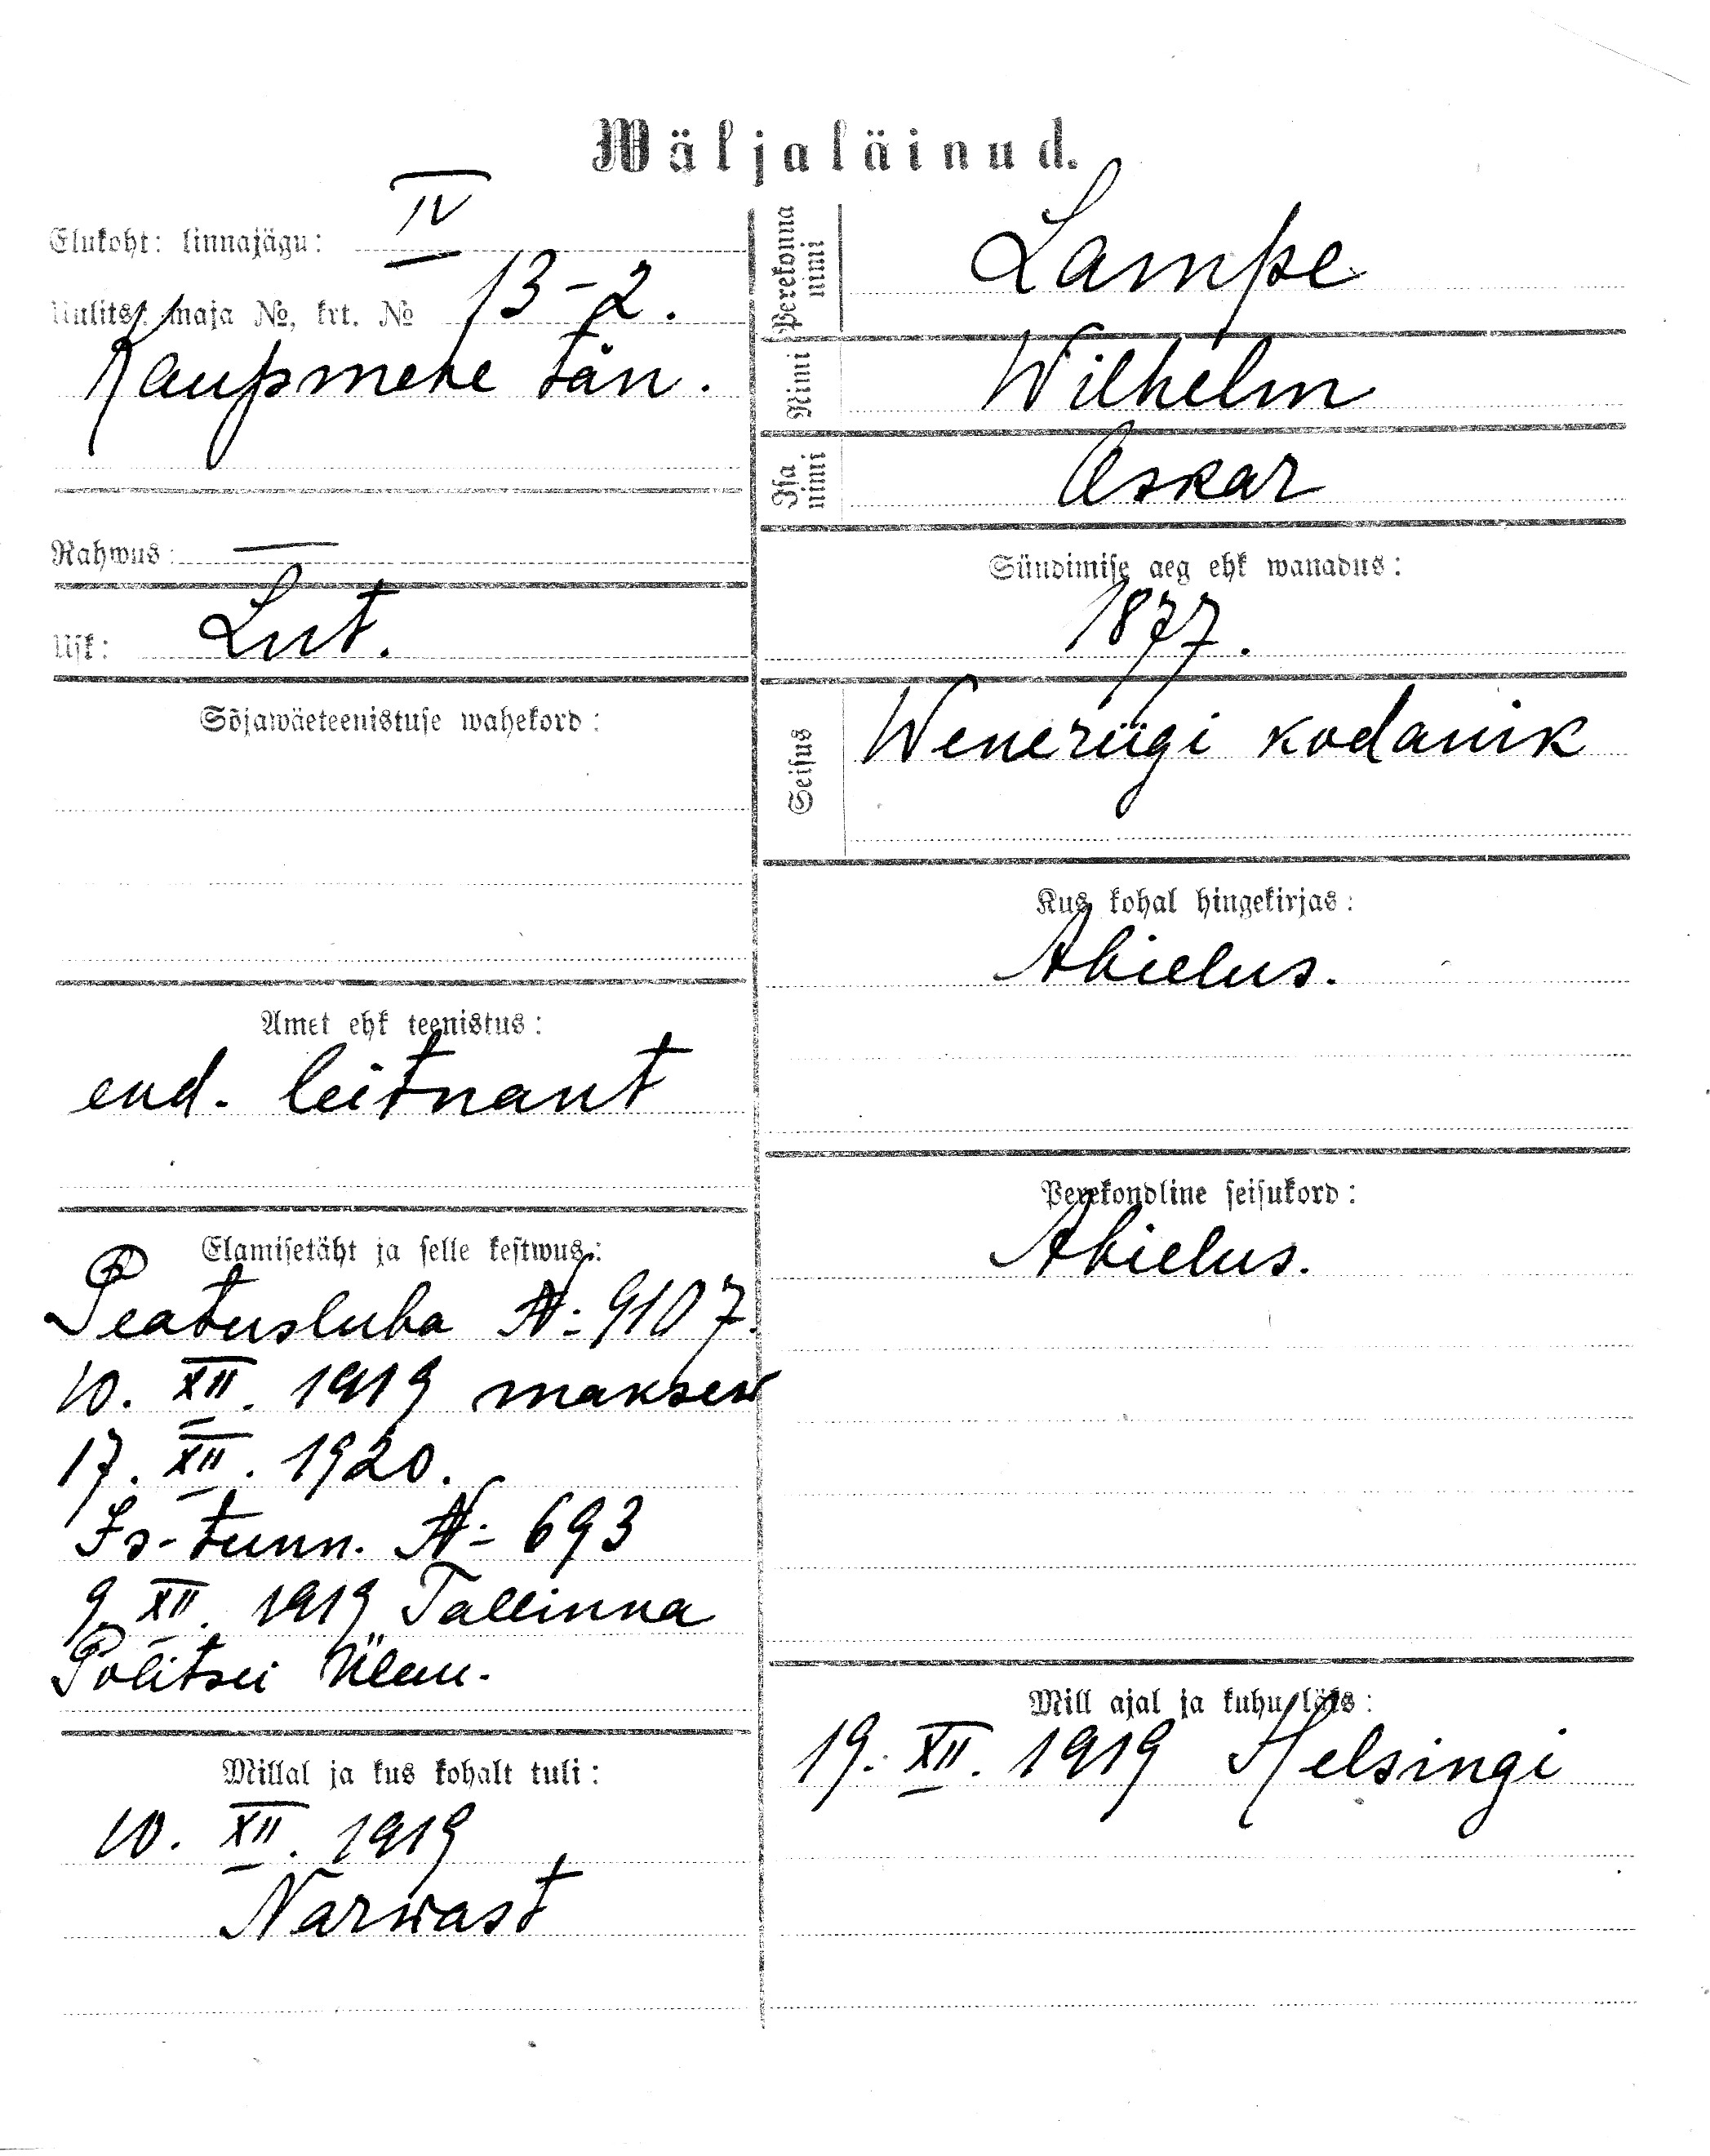 Wäljaläinud.
Elukoht: linnajägu: IV
Uulits, maja №, krt. № 13-2.
Kaupmehe tän.
Rahwus: —
Usk: Lut.
Sõjawäeteenistuse wahekord:
Amet ehk teenistus:
end. leitnant
Elamisetäht ja selle kestwus:
Peatusluba № 9107.
10. XII. 1919 maksew
17. XII. 1920.
Is-tunn. № 693
9. XII. 1919 Tallinna
Politsei Ülem.
Millal ja kus kohalt tuli:
10. XII. 1919
Narwast
Perekonna nimi Lampe
Nimi Wilhelm
Isa nimi Oskar
Sündimise aeg ehk wanadus:
1877.
Seisus Weneriigi kodanik
Kus kohal hingekirjas:
Abielus.
Perekondline seisukord:
Abielus.
Mill ajal ja kuhu läks:
19. XII. 1919 Helsingi